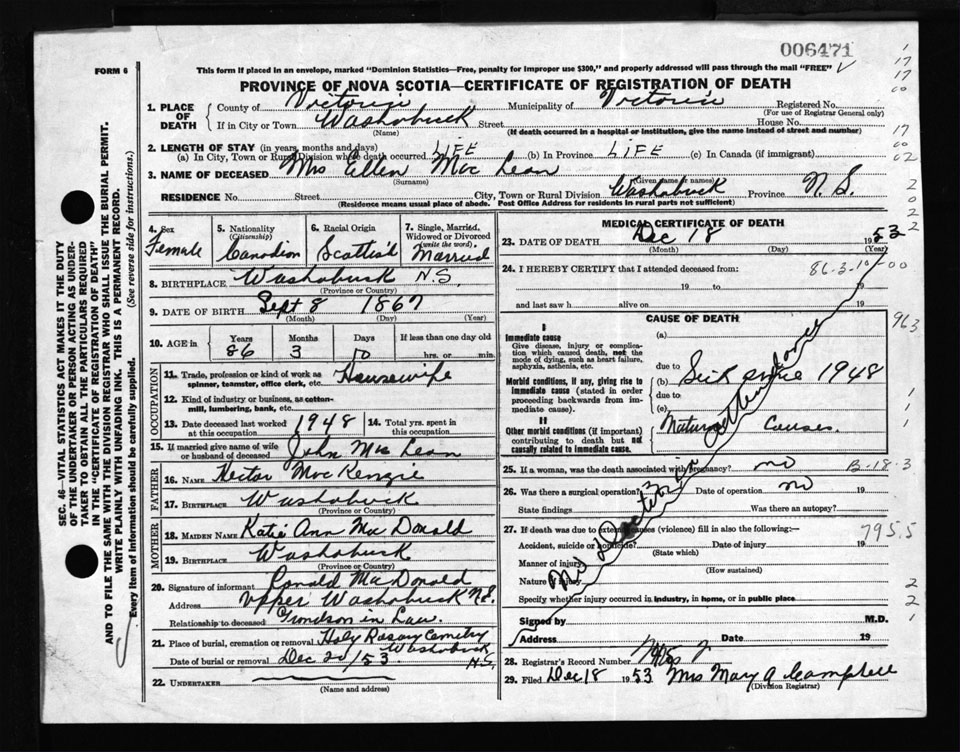 006471
FORM 6
This form if placed in an envelope, marked "Dominion Statistics—Free, penalty for improper use $300," and properly addressed will pass through the mail "FREE"
PROVINCE OF NOVA SCOTIA—CERTIFICATE OF REGISTRATION OF DEATH
1. PLACE OF DEATH County of Victoria Municipality of Victoria Registered No.
(For use of Registrar General only)
If in City or Town Washabuck Street House No.
(Name) (If death occurred in a hospital or institution, give the name instead of street and number)
2. LENGTH OF STAY (in years, months and days)
(a) In City, Town or Rural Division where death occurred LIFE (b) In Province LIFE (c) In Canada (if immigrant)
3. NAME OF DECEASED Mrs Ellen Mac Lean
(Surname) (Given name or names)
RESIDENCE No. Street City, Town or Rural Division Washabuck Province N. S.
(Residence means usual place of abode. Post Office Address for residents in rural parts not sufficient)
4. Sex Female
5. Nationality (Citizenship) Canadian
6. Racial Origin Scottish
7. Single, Married, Widowed or Divorced (write the word) Married
8. BIRTHPLACE Washabuck N.S.
(Province or Country)
9. DATE OF BIRTH Sept 8 1867
(Month) (Day) (Year)
10. AGE in Years 86 Months 3 Days 10 If less than one day old hrs. or min.
OCCUPATION
11. Trade, profession or kind of work as spinner, teamster, office clerk, etc. Housewife
12. Kind of industry or business, as cotton-mill, lumbering, bank, etc.
13. Date deceased last worked at this occupation 1948 14. Total yrs. spent in this occupation
15. If married give name of wife or husband of deceased John Mac Lean
FATHER
16. NAME Hector Mac Kenzie
17. BIRTHPLACE Washabuck
(Province or Country)
MOTHER
18. MAIDEN NAME Katie Ann Mac Donald
19. BIRTHPLACE Washabuck
(Province or Country)
20. Signature of informant Ronald MacDonald
Address Upper Washabuck N.S.
Relationship to deceased Grandson in Law
21. Place of burial, cremation or removal Holy Rosary Cemetry Washabuck N.S.
Date of burial or removal Dec 20/53
22. UNDERTAKER
(Name and address)
MEDICAL CERTIFICATE OF DEATH
23. DATE OF DEATH Dec 18 1953
(Month) (Day) (Year)
24. I HEREBY CERTIFY that I attended deceased from: 86-3-10
19 to 19
and last saw h alive on 19
CAUSE OF DEATH
I
Immediate cause
Give disease, injury or complication which caused death, not the mode of dying, such as heart failure, asphyxia, asthenia, etc.
(a)
due to
Morbid conditions, if any, giving rise to immediate cause (stated in order proceeding backwards from immediate cause).
(b) Sick since 1948
due to
(c)
II
Other morbid conditions (if important) contributing to death but not causally related to immediate cause.
Natural Causes
25. If a woman, was the death associated with pregnancy? no B-18-3
26. Was there a surgical operation? Date of operation no 19
State findings Was there an autopsy?
27. If death was due to external causes (violence) fill in also the following:— 795.5
Accident, suicide or homicide? Date of injury 19
(State which)
Manner of injury
(How sustained)
Nature of injury
Specify whether injury occurred in industry, in home, or in public place
No Doctor in
Signed by M.D.
Address Date 19
28. Registrar's Record Number
29. Filed Dec 18 1953 Mrs Mary A Campbell
(Division Registrar)
SEC. 46—VITAL STATISTICS ACT MAKES IT THE DUTY
OF THE UNDERTAKER OR PERSON ACTING AS UNDERTAKER TO OBTAIN ALL THE PARTICULARS REQUIRED
IN THE "CERTIFICATE OF REGISTRATION OF DEATH"
AND TO FILE THE SAME WITH THE DIVISION REGISTRAR WHO SHALL ISSUE THE BURIAL PERMIT.
WRITE PLAINLY WITH UNFADING INK. THIS IS A PERMANENT RECORD.
Every item of information should be carefully supplied. (See reverse side for instructions.)
17
17
00
17
00
02
2
0
2
2
00
963
1
1
1
2
2
1